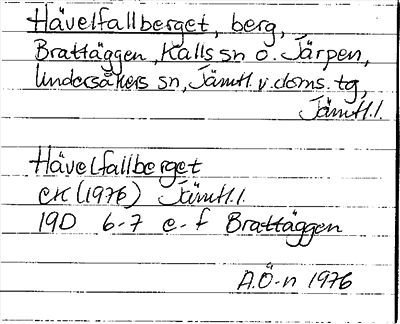 Hävelfallberget, berg,
Brattäggen, Kalls sn o. Järpen,
Undersåkers sn, Jämtl. v. doms. tg,
Jämtl. l.
Hävelfallberget
ek (1976) Jämtl. l.
19D 6-7 e-f Brattäggen
A.Ö-n 1976